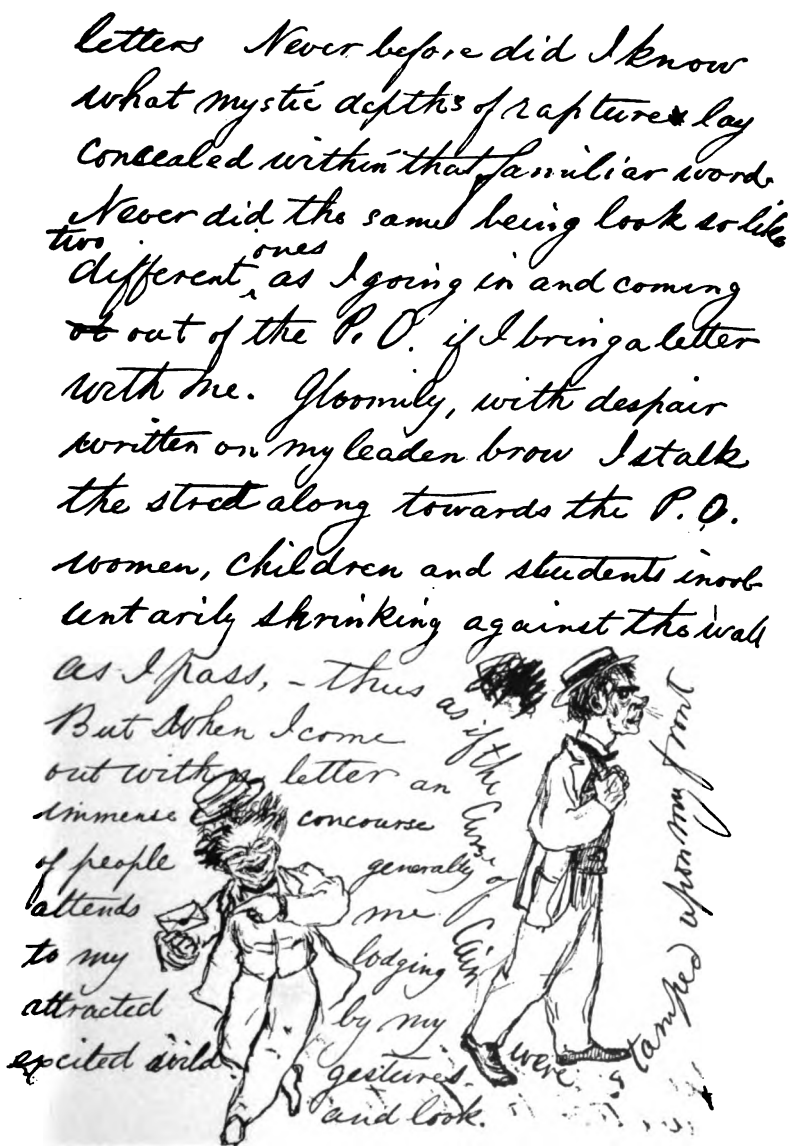 letters Never before did I know
what mystic depths of rapture lay
concealed within that familiar word.
Never did the same being look so like
two
different ones as I going in and coming
out of the P.O. if I bring a letter
with me. Gloomily, with despair
written on my leaden brow I stalk
the street along towards the P.O.
women, children and students invol-
untarily shrinking against the wall
as I pass, – thus
as if the curse of Cain
were
stamped upon my front
But when I come
out with a letter an
immense concourse
of people generally
attends me
to my lodging
attracted by my
excited wild
gestures.
and look.